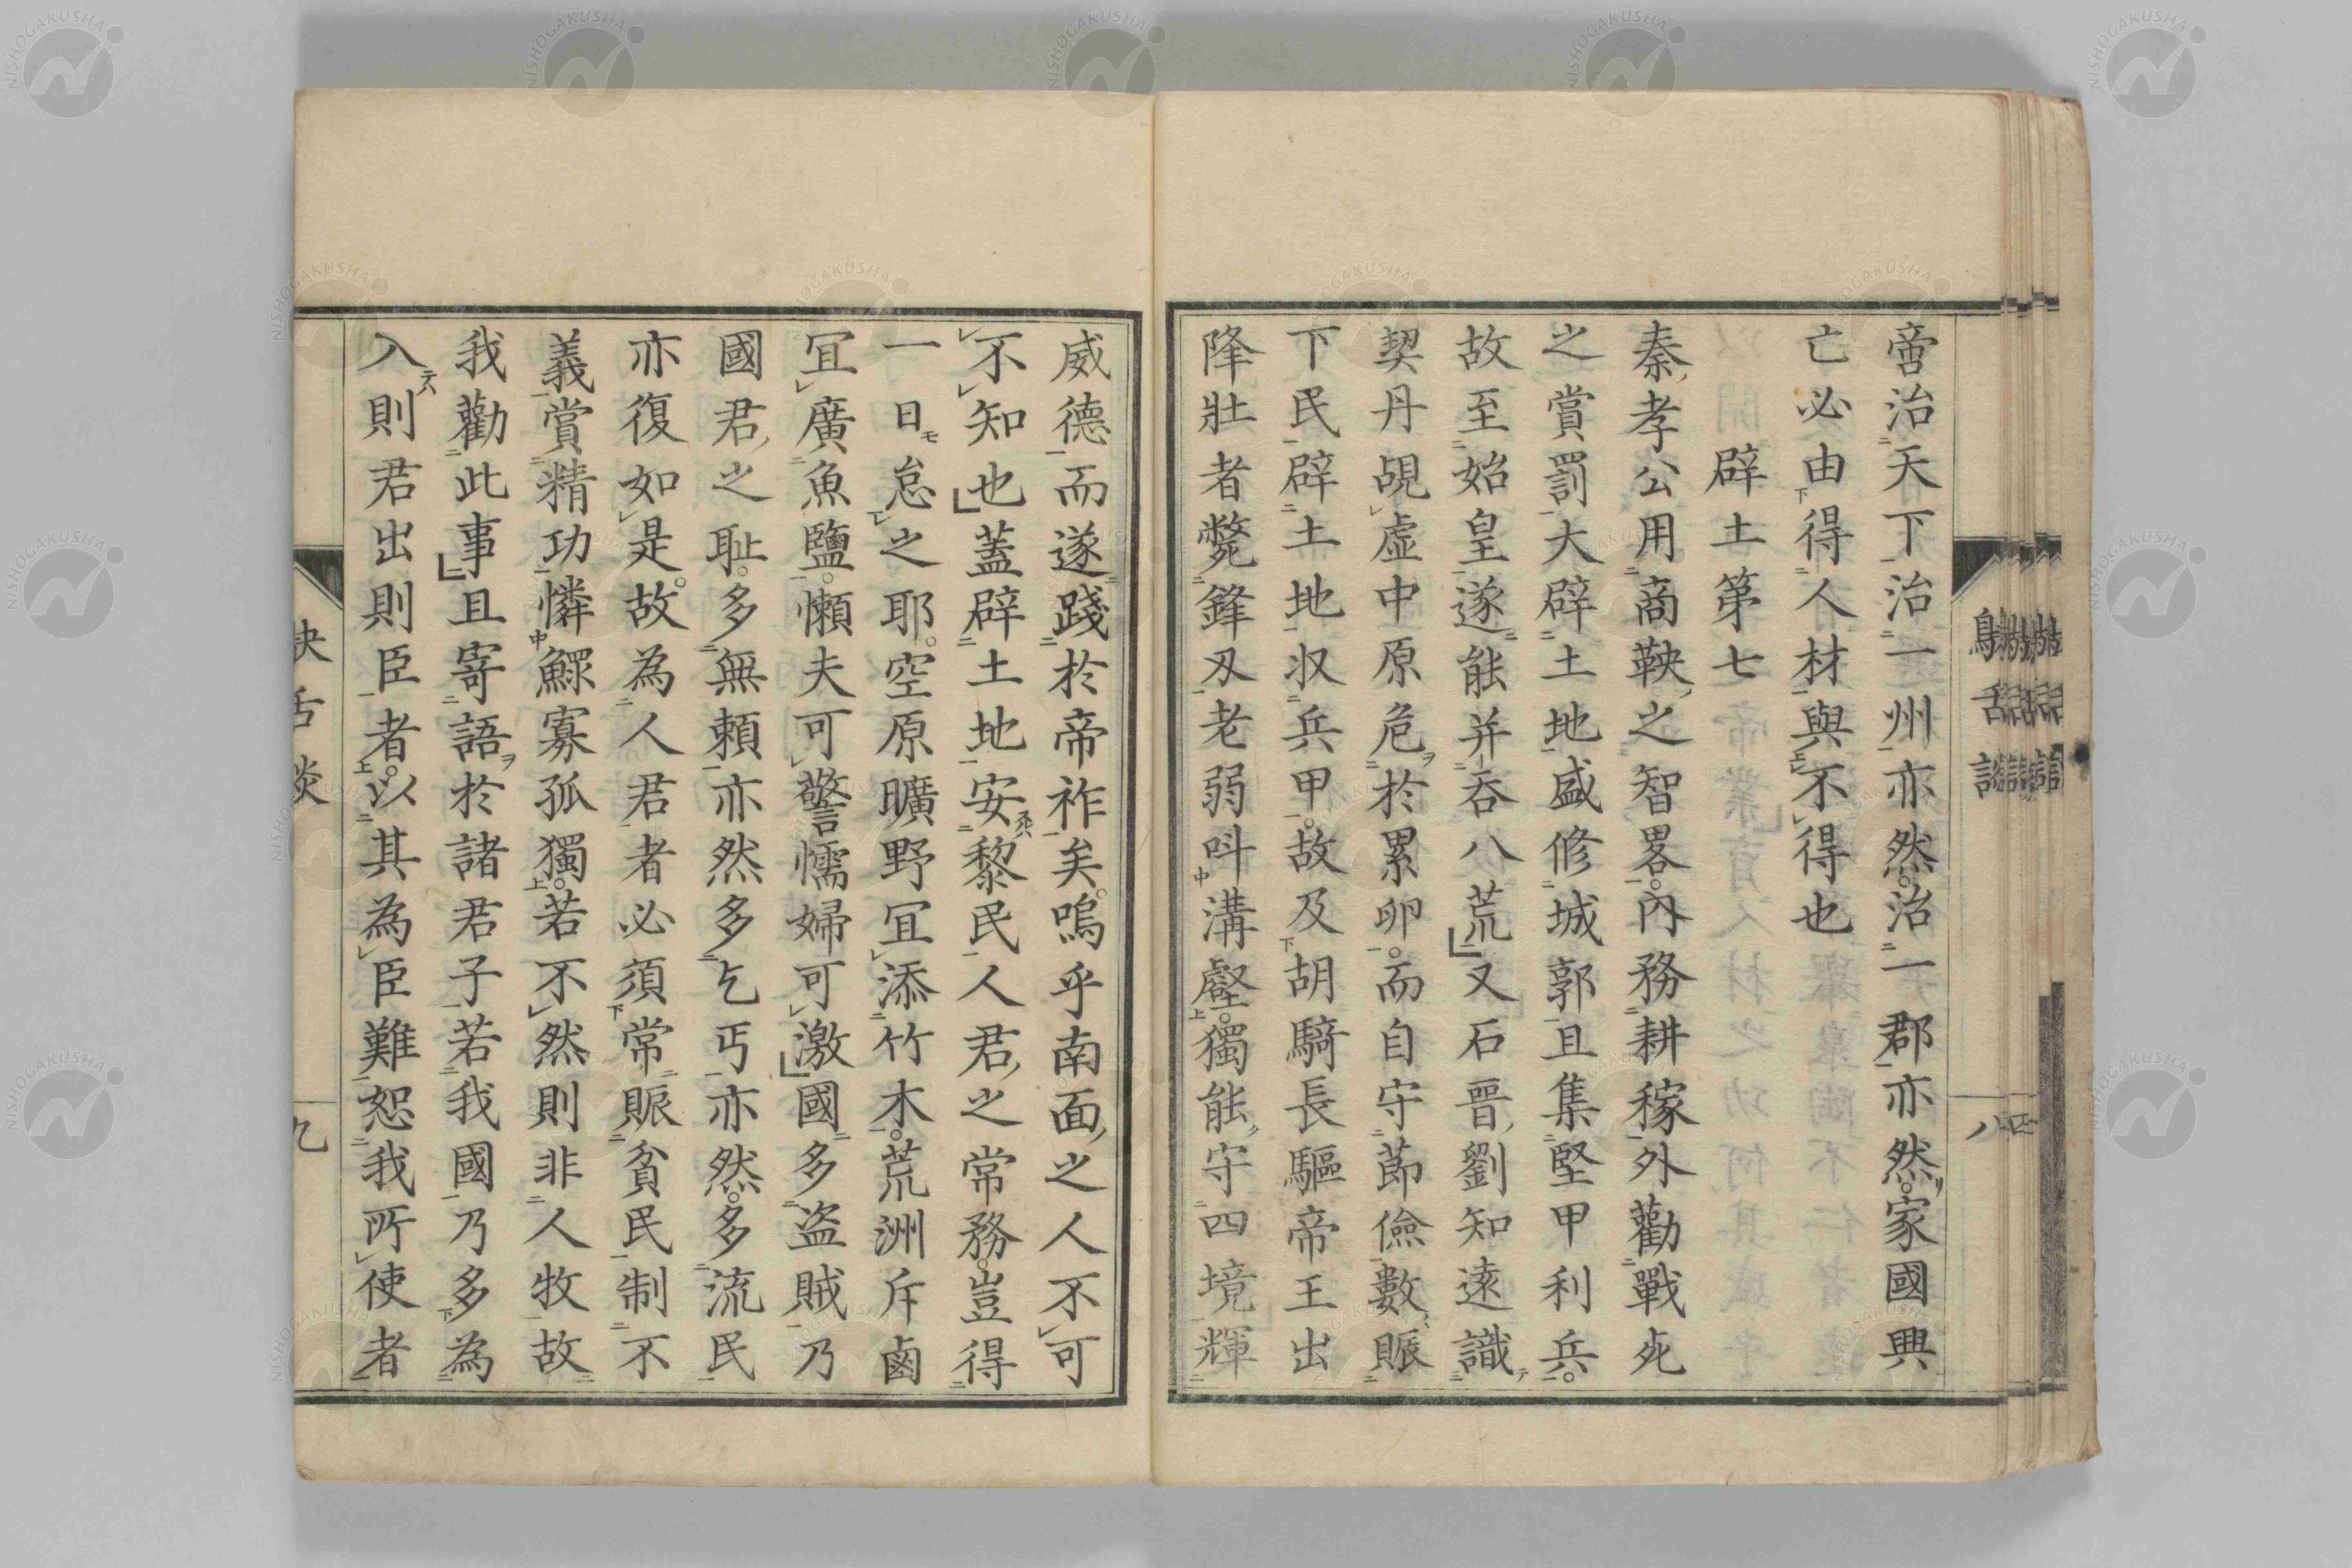 啻治天下治一州亦然治一郡亦然家國興
亡必由得人材與不得也
辟土第七
秦孝公用商鞅之智畧內務耕稼外勸戰死
之賞罰大辟土地盛修城郭且集堅甲利兵
故至始皇遂能并吞八荒又石晉劉知遠識
契丹覘虛中原危於累卵而自守節儉數賑
下民辟土地収兵甲故及胡騎長驅帝王出
降壯者斃鋒刄老弱呌溝壑獨能守四境輝
鴃舌談
八
威德而遂踐於帝祚矣嗚乎南面之人不可
不知也蓋辟土地安黎民人君之常務豈得
一日モ怠之耶空原曠野冝添竹木荒洲斥鹵
冝廣魚鹽懶夫可警懦婦可激國多盜賊乃
國君之耻多無頼亦然多乞丐亦然多流民
亦復如是故為人君者必須常賑貧民制不
義賞精功憐鰥寡孤獨若不然則非人牧故
我勸此事且寄語於諸君子若我國乃多為
入則君出則臣者以其為臣難恕我所使者
鴃舌談
九
NISHOGAKUSHA